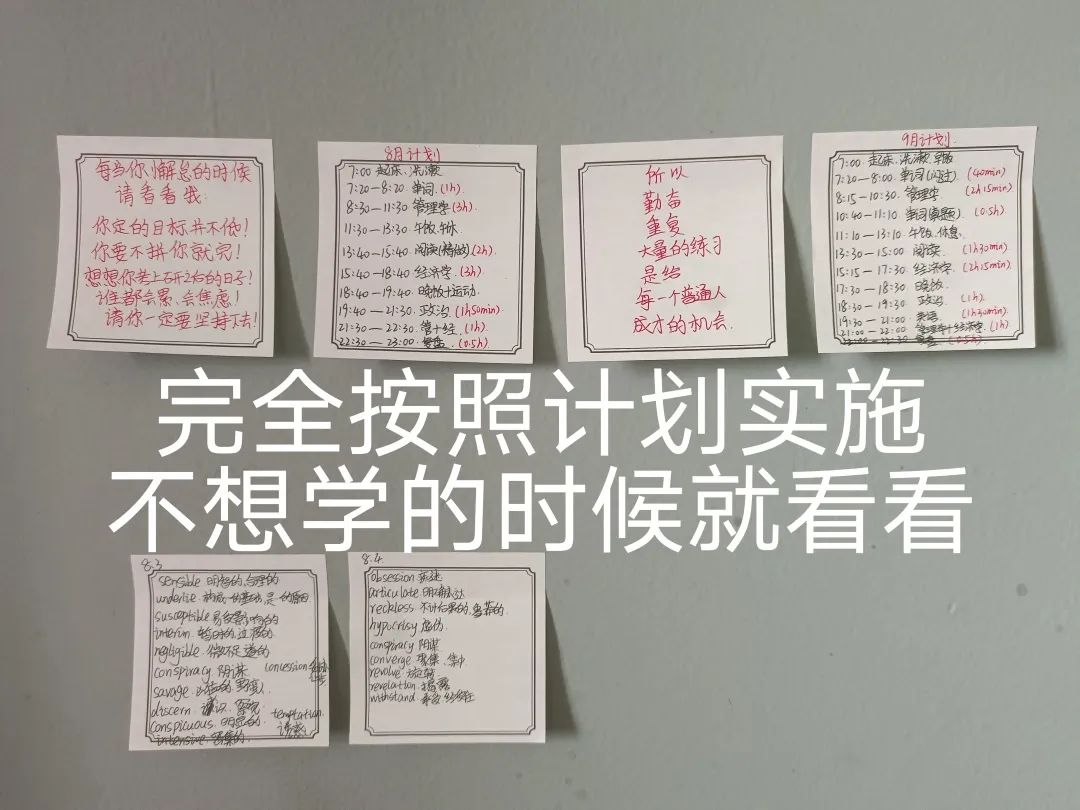 每当你懈怠的时候
请看看我:
你定的目标并不低!
你要不拼你就完!
想想你考上研之后的日子!
谁都会累、会焦虑!
请你一定要坚持下去!
8月计划
7:00 起床、洗漱
7:20—8:20 单词.(1h)
8:30—11:30 管理学(3h).
11:30—13:30 午饭、午休
13:40—15:40 阅读(精做)(2h)
15:40—18:40 经济学.(3h)
18:40—19:40 晚饭+运动.
19:40—21:30 政治.(1h50min)
21:30—22:30 管+经.(1h).
22:30—23:00 复盘.(0.5h)
所以
勤奋
重复
大量的练习
是给
每一个普通人
成才的机会.
9月计划.
7:00 起床、洗漱、早饭
7:20—8:00 单词(闪过).(40min)
8:15—10:30 管理学.(2h15min)
10:40—11:10 单词(真题).(0.5h)
11:10—13:10 午饭、休息.
13:30—15:00 阅读.(1h30min)
15:15—17:30 经济学.(2h15min).
17:30—18:30 晚饭.
18:30—19:30 政治.(1h).
19:30—21:00 英语.(1h30min)
21:00—22:00 管理学+经济学.(1h)
22:00—22:30 复盘.(0.5h)
完全按照计划实施
不想学的时候就看看
8.3
sensible 明智的、合理的
underlie.构成…的基础,是…的原因
susceptible 易受影响的
interim.暂时的、过渡的
negligible.微不足道的
conspiracy.阴谋 concession
savage.
discern.
conspicuous.明显的. temptation.
intensive.密集的. 诱惑
8.4.
obsession
articulate 明确表达
reckless 不计后果的、鲁莽的.
hypocrisy 虚伪.
conspiracy 阴谋
converge 聚集、集中
revolve.旋转
revelation.揭露
withstand.承受、经受住